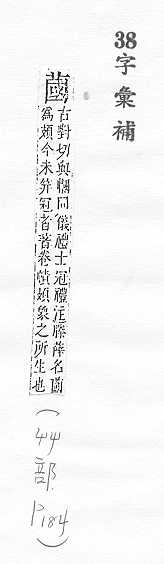 38字彙補
蔮
古對切與幗同儀禮士冠禮注滕薛名蔮
爲頍今未笄冠者著卷幘頍象之所生也
(艸部 P184)